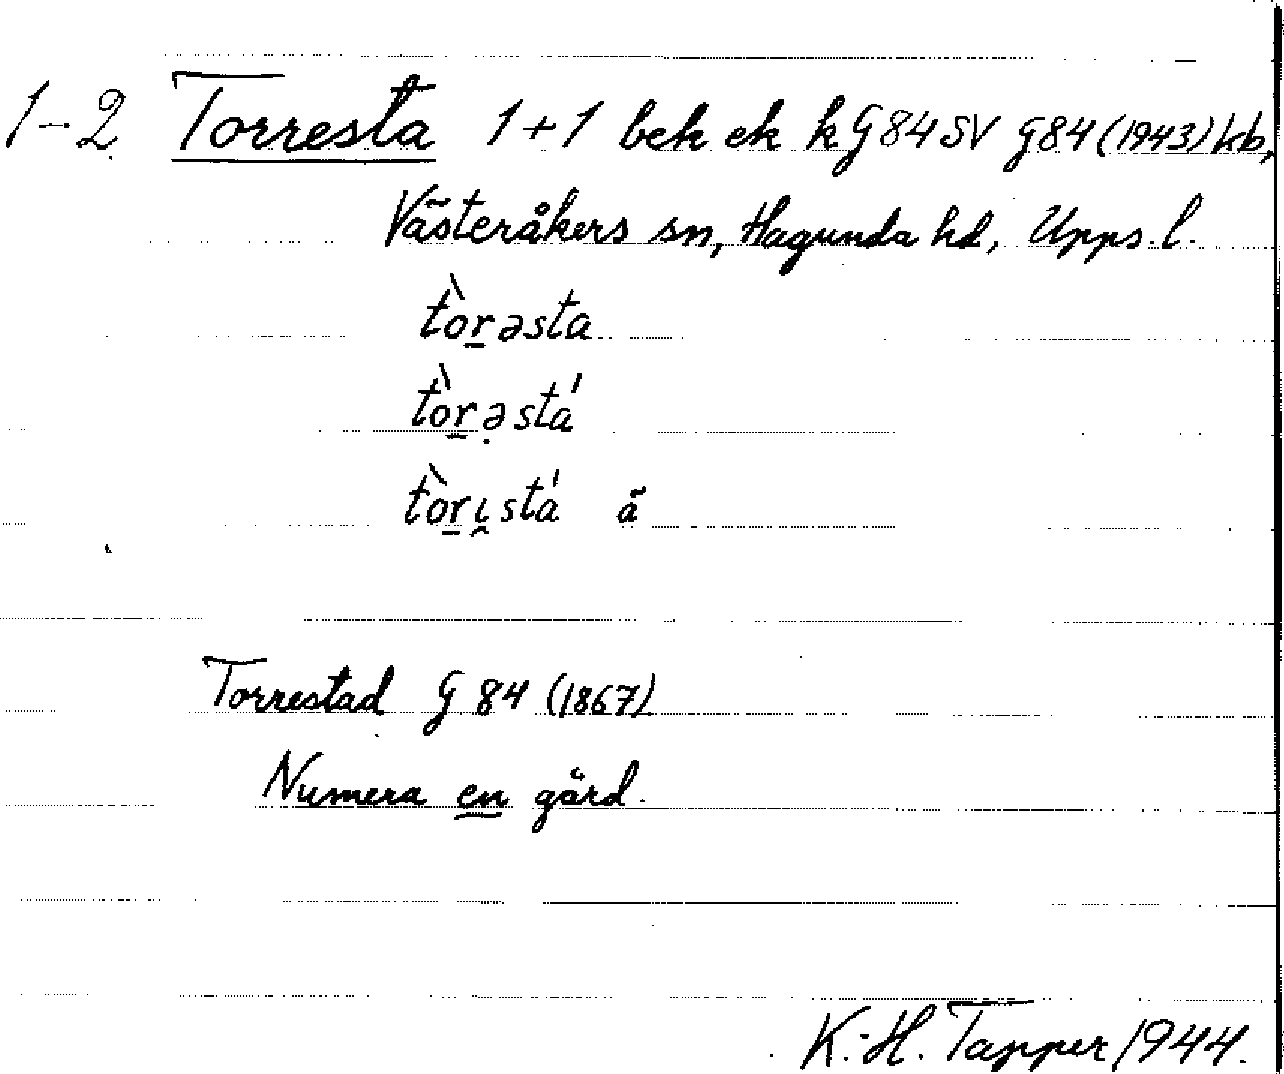 1-2 Torresta 1+1 bek ek k G84SV G84(1943) kb,
Västeråkers sn, Hagunda hd, Upps. l.
tòr̠əsta
tòr̠ə̣stá
tòr̠ı̯stá ä
Torrestad G 84 (1867)
Numera en gård.
K.-H. Tapper 1944.